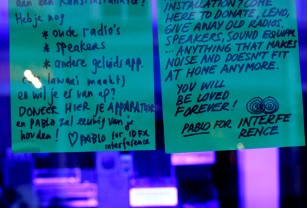 aan een kunstinstallatie?
Heb je nog
* oude radio's
* speakers
* andere geluids app.
lawaai maakt)
en wil je er van af?
DONEER HIER JE APPARATUUR
en PABLO zal eeuwig van je
houden! ♡ PABLO for IDFX
interference
INSTALLATION? COME
HERE TO DONATE, LEND,
GIVE AWAY OLD RADIOS,
SPEAKERS, SOUND EQUIPM.
... ANYTHING THAT MAKES
NOISE AND DOESN'T FIT
AT HOME ANYMORE.
YOU WILL
BE LOVED
FOREVER!
PABLO FOR INTERFE
RENCE